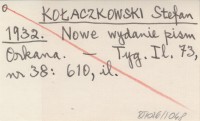 KOŁACZKOWSKI Stefan
1932. Nowe wydanie pism
Orkana. — Tyg. Il. 73,
nr 38: 610, il.